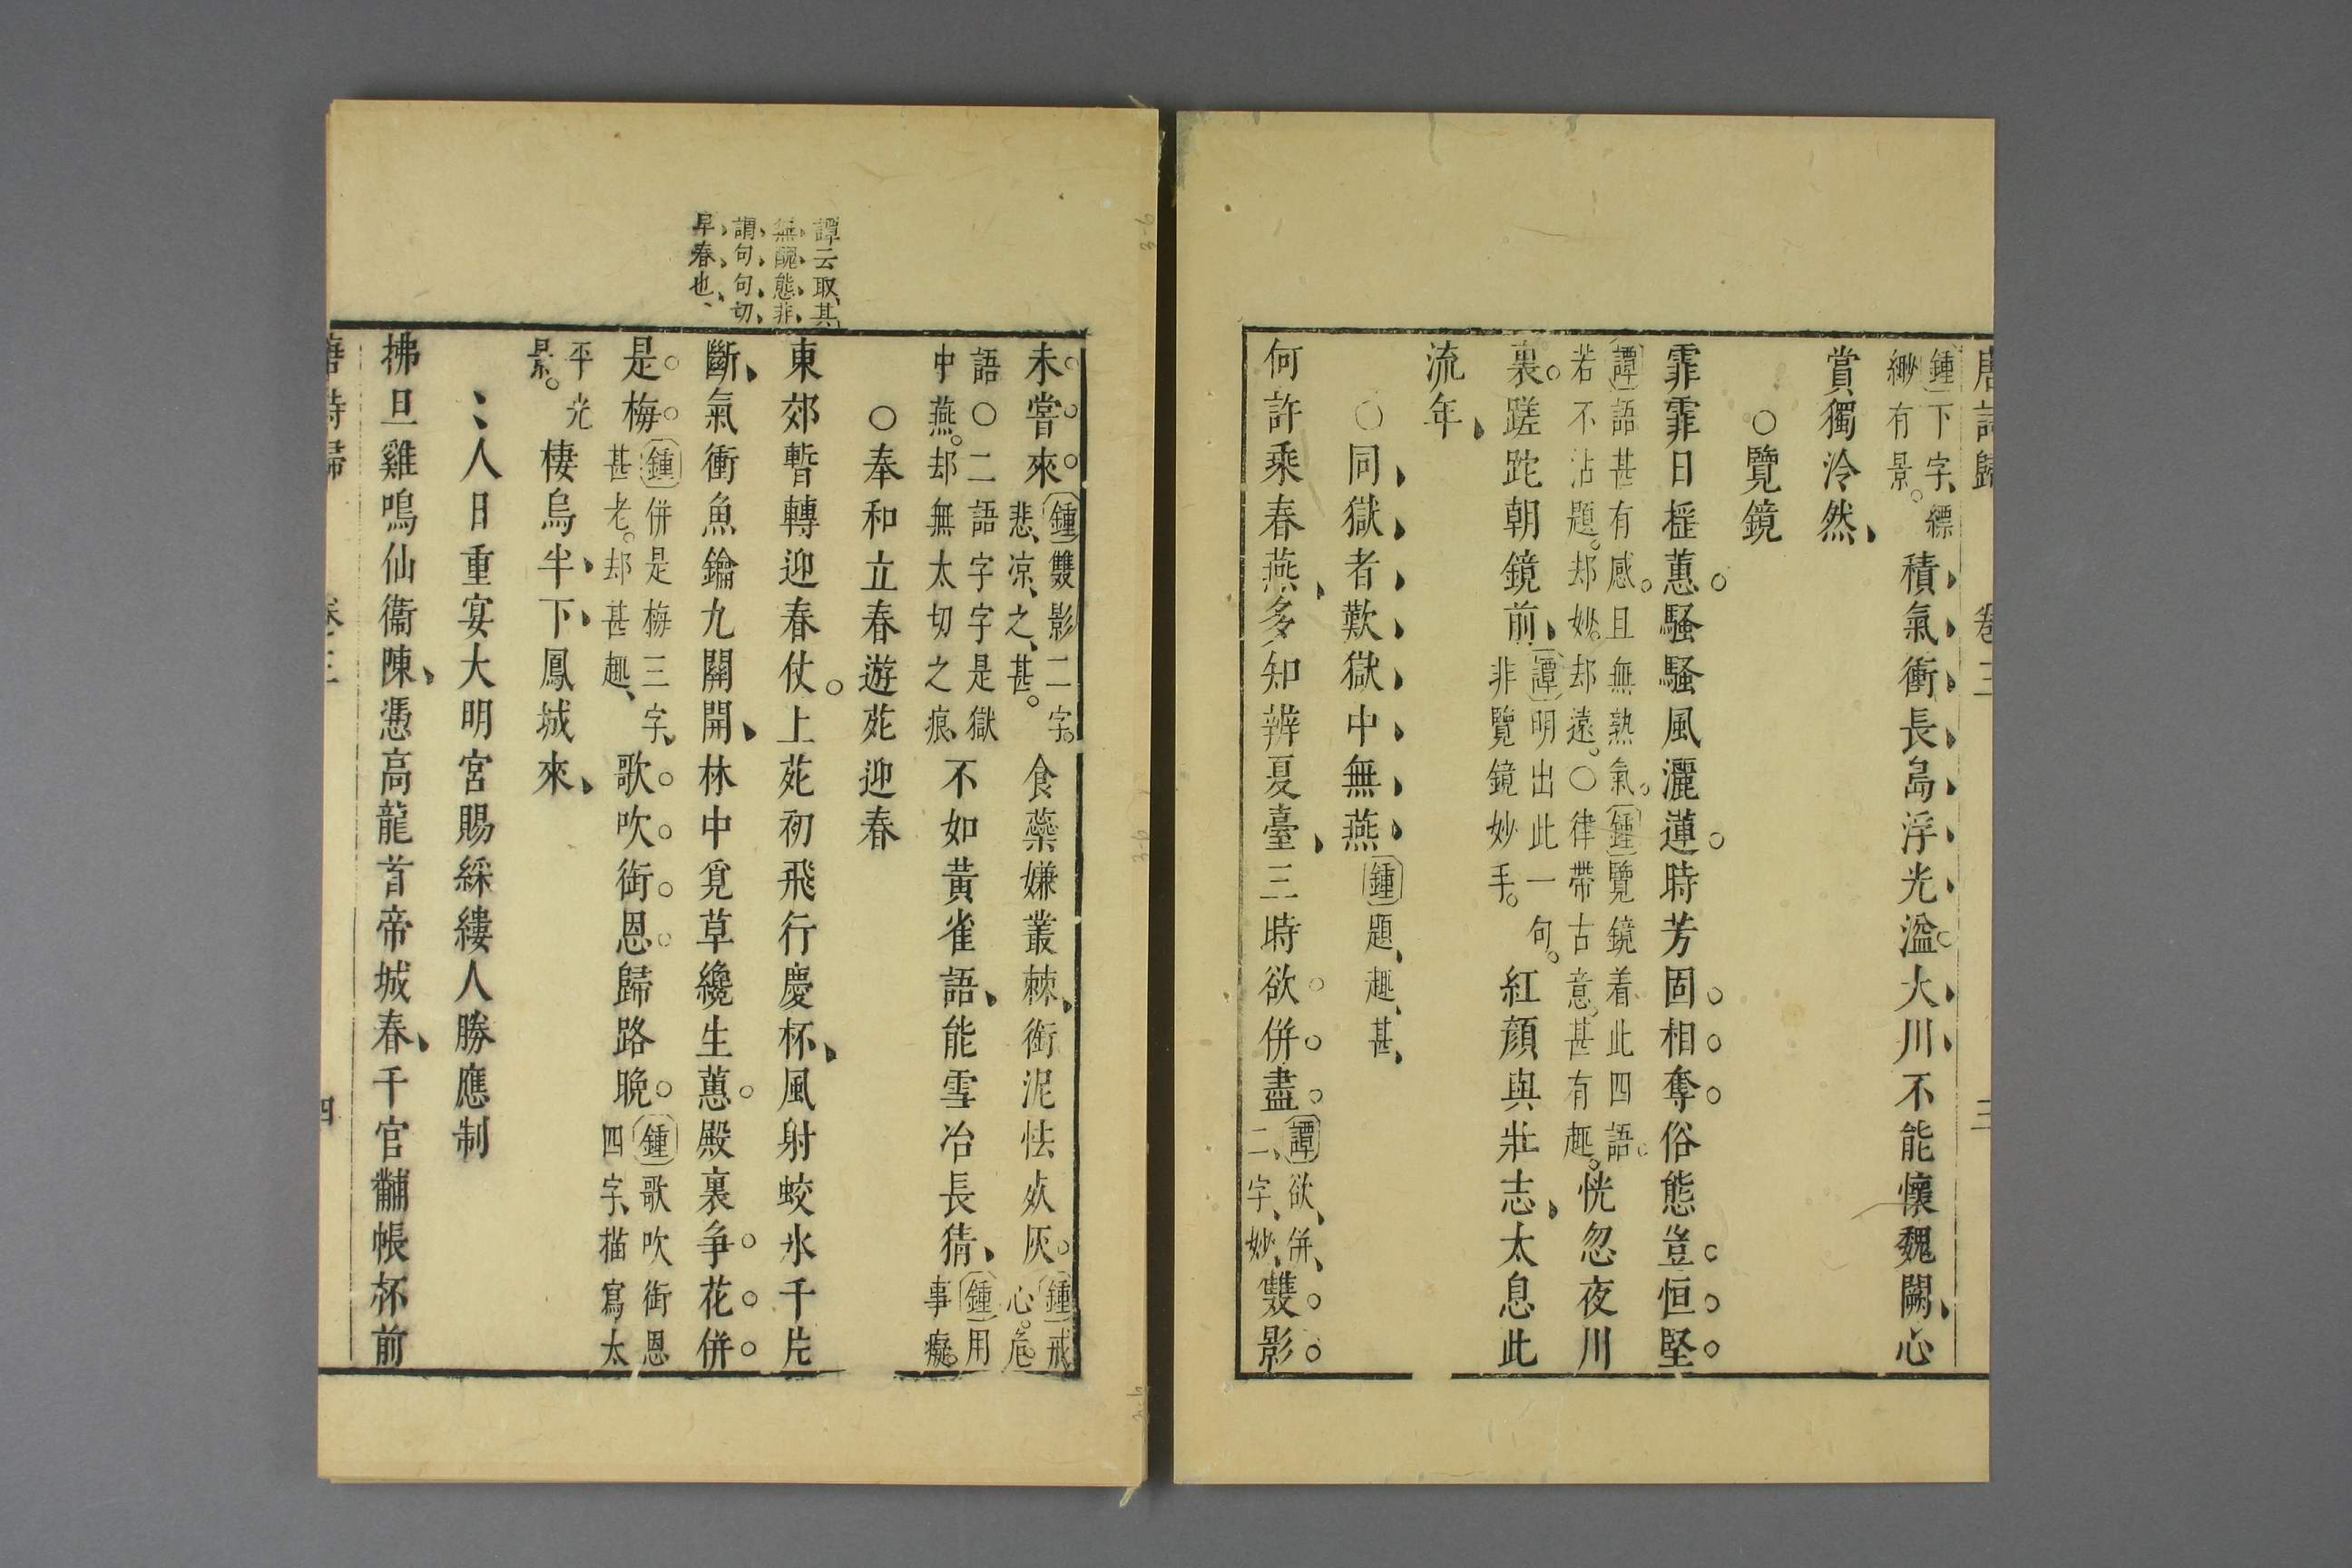 唐詩歸 卷三 三
鍾下字縹緲有景。積氣衝長島浮光溢大川不能懷魏闕心
賞獨泠然
○覽鏡
霏霏日搖蕙騷騷風灑蓮時芳固相奪俗態豈恒堅
譚語甚有感。且無熟氣。鍾覽鏡着此四語。若不沾題。却妙。却遠。○律帶古意。甚有趣。恍忽夜川
裏蹉跎朝鏡前譚明出此一句。非覽鏡妙手。紅顏與壯志太息此
流年
○同獄者歎獄中無燕鍾題趣甚
何許乘春燕多知辨夏臺三時欲併盡譚欲併二字妙雙影
未嘗來鍾雙影二字。悲凉之甚。食蘂嫌叢棘銜泥怯死灰鍾戒心。危
語○二語字字是獄中燕。却無太切之痕不如黃雀語能雪冶長猜鍾用事癡。
○奉和立春遊苑迎春
譚云取其
無醜態非
謂句句切
早春也
東郊暫轉迎春仗上苑初飛行慶杯風射蛟氷千片
斷氣衝魚鑰九關開林中覓草纔生蕙殿裏爭花併
是梅鍾併是梅三字甚老。却甚趣歌吹銜恩歸路晚鍾歌吹銜恩四字描寫太
平光景。棲烏半下鳳城來
人日重宴大明宮賜綵縷人勝應制
拂旦雞鳴仙衞陳憑高龍首帝城春千官黼帳杯前
唐詩歸 卷三 四